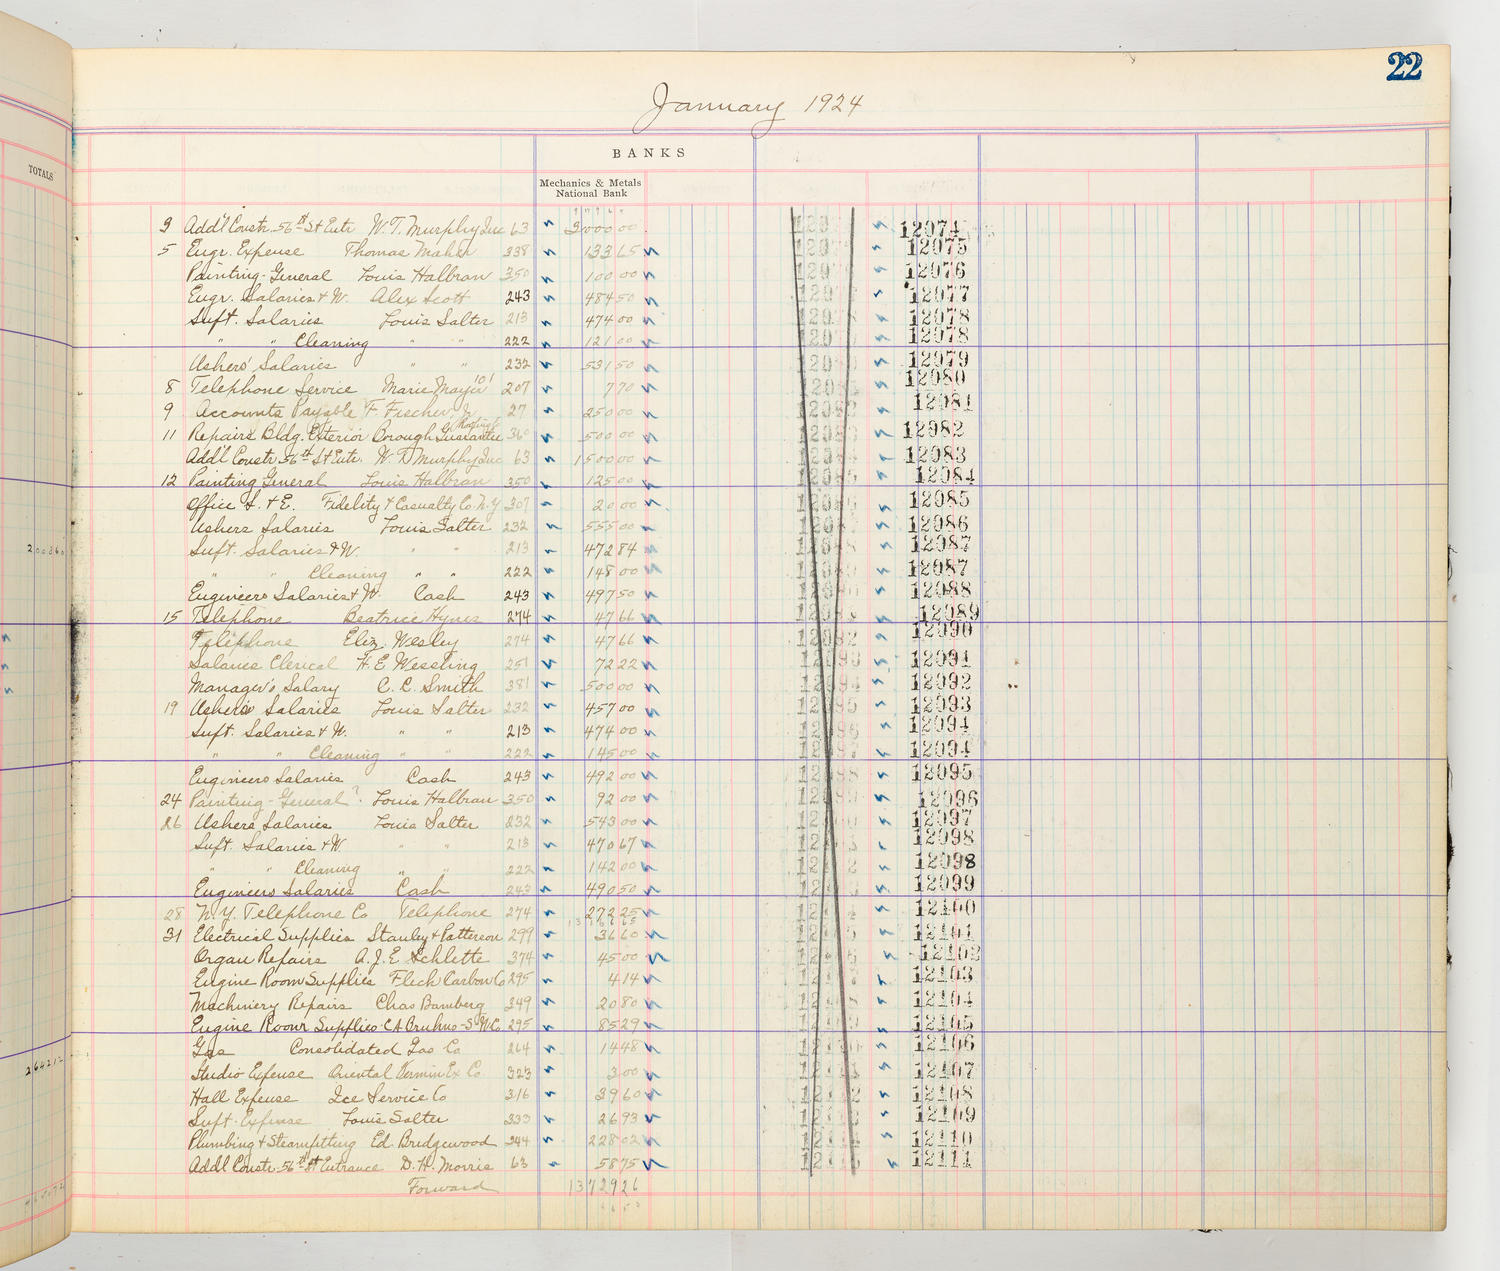 22
January 1924
TOTALS
BANKS
Mechanics & Metals
National Bank
3 Add'l Constr. 56th St Entr. W. T. Murphy Inc 63 3000 00 12074
5 Engr. Expense Thomas Maher 338 133 65 12075
Painting-General Louis Halbran 350 100 00 12076
Engr. Salaries & W. Alex Scott 243 484 50 12077
Supt. Salaries Louis Salter 213 474 00 12078
" " Cleaning " " 222 121 00 12078
Ushers' Salaries " " 232 531 50 12079
8 Telephone Service Marie Mayer 207 7 70 12080
9 Accounts Payable F. Fischer Jr 27 250 00 12081
11 Repairs Bldg. Exterior Borough Guarantee Roofing Co 360 500 00 12082
Add'l Constr 56th St Entr. W. T. Murphy Inc 63 1500 00 12083
12 Painting General Louis Halbran 350 125 00 12084
Office S. & E. Fidelity & Casualty Co. N.Y 307 20 00 12085
Ushers Salaries Louis Salter 232 555 00 12086
Supt. Salaries & W. " " 213 472 84 12087
" " Cleaning " " 222 148 00 12087
Engineers Salaries & W. Cash 243 497 50 12088
15 Telephone Beatrice Hynes 274 47 66 12089
Telephone Eliz. Wesley 274 47 66 12090
Salaries Clerical H. E. Wessling 251 72 22 12091
Manager's Salary C. C. Smith 381 500 00 12092
19 Ushers Salaries Louis Salter 232 457 00 12093
Supt. Salaries & W. " " 213 474 00 12094
" " Cleaning " " 222 145 00 12094
Engineers Salaries Cash 243 492 00 12095
24 Painting-General ? Louis Halbran 350 92 00 12096
26 Ushers Salaries Louis Salter 232 543 00 12097
Supt. Salaries & W " " 213 470 67 12098
" " Cleaning " " 222 142 00 12098
Engineers Salaries Cash 243 490 50 12099
28 N.Y. Telephone Co Telephone 274 272 25 12100
31 Electrical Supplies Stanley & Patterson 299 36 60 12101
Organ Repairs A. J. E. Schlette 374 45 00 12102
Engine Room Supplies Flech Carbon Co 295 4 14 12103
Machinery Repairs Chas Bamberg 349 20 80 12104
Engine Room Supplies C A Bruhns-S W Co 295 85 29 12105
Gas Consolidated Gas Co 264 14 48 12106
Studio Expense Oriental Vermin Ex Co 323 3 00 12107
Hall Expense Ice Service Co 316 39 60 12108
Supt. Expense Louis Salter 333 26 93 12109
Plumbing & Steamfitting Ed. Bridgewood 344 228 02 12110
Add'l Constr 56th St Entrance D. H. Morris 63 58 75 12111
Forward 13729 26